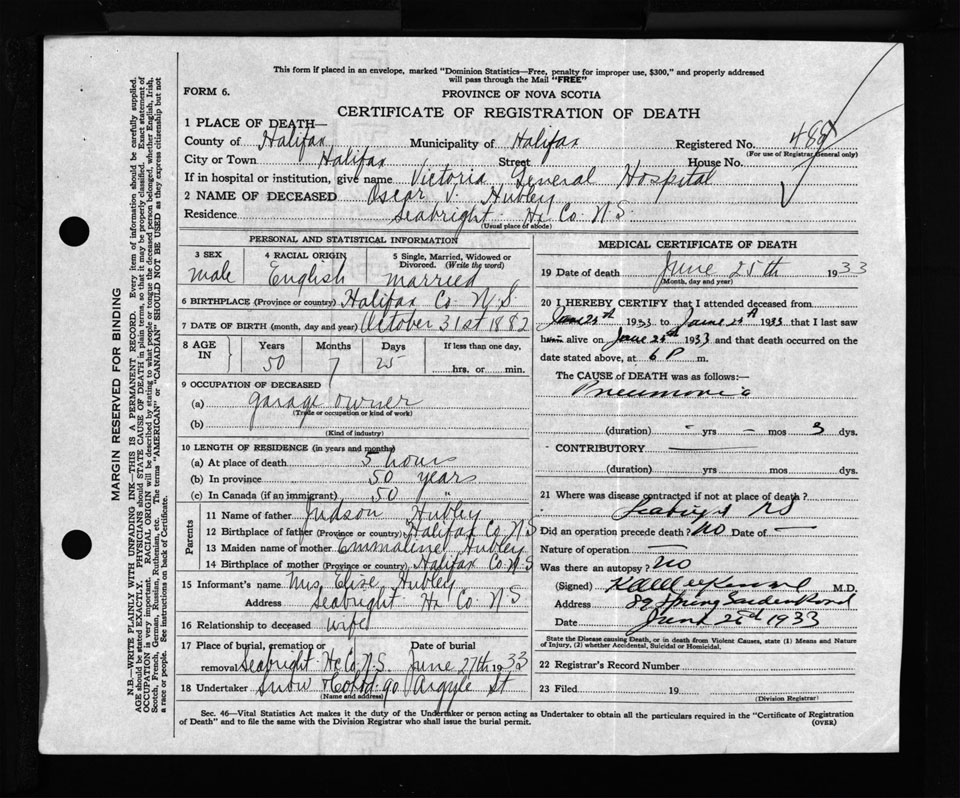 This form if placed in an envelope, marked "Dominion Statistics—Free, penalty for improper use, $300," and properly addressed
will pass through the Mail "FREE"
FORM 6.
PROVINCE OF NOVA SCOTIA
CERTIFICATE OF REGISTRATION OF DEATH
1 PLACE OF DEATH—
County of Halifax Municipality of Halifax Registered No.
(For use of Registrar General only)
City or Town Halifax Street House No.
If in hospital or institution, give name Victoria General Hospital
2 NAME OF DECEASED Oscar J. Hubley
Residence Seabright Hx Co. N.S.
(Usual place of abode)
PERSONAL AND STATISTICAL INFORMATION
3 SEX 4 RACIAL ORIGIN 5 Single, Married, Widowed or
Divorced. (Write the word)
Male English Married
6 BIRTHPLACE (Province or country) Halifax Co N.S.
7 DATE OF BIRTH (month, day and year) October 31st 1882
8 AGE IN Years Months Days If less than one day,
50 7 25 hrs. or min.
9 OCCUPATION OF DECEASED
(a) garage owner
(Trade or occupation or kind of work)
(b)
(Kind of industry)
10 LENGTH OF RESIDENCE (in years and months)
(a) At place of death 5 hours
(b) In province 50 years
(c) In Canada (if an immigrant) 50 "
Parents
11 Name of father Judson Hubley
12 Birthplace of father (Province or country) Halifax Co N.S
13 Maiden name of mother Emmaline Hubley
14 Birthplace of mother (Province or country) Halifax Co. N.S
15 Informant's name Mrs. Elize Hubley
Address Seabright Hx Co. N.S
16 Relationship to deceased wife
17 Place of burial, cremation or Date of burial
removal Seabright Hx Co. N.S. June 27th 1933
18 Undertaker Snow & Co Ltd 90 Argyle St
(Name and address)
MEDICAL CERTIFICATE OF DEATH
19 Date of death June 25th 1933
(Month, day and year)
20 I HEREBY CERTIFY that I attended deceased from
1933 to 1933 that I last saw
h alive on June 1933 and that death occurred on the
date stated above, at 6 P m.
The CAUSE of DEATH was as follows:—
Pneumonia
(duration) - yrs - mos 3 dys.
CONTRIBUTORY
(duration) yrs. mos. dys.
21 Where was disease contracted if not at place of death?
Did an operation precede death? No Date of —
Nature of operation —
Was there an autopsy? No
(Signed) M.D.
Address 89 Spring Garden Road
Date June 1933
State the Disease causing Death, or in death from Violent Causes, state (1) Means and Nature
of Injury, (2) whether Accidental, Suicidal or Homicidal.
22 Registrar's Record Number
23 Filed 19
(Division Registrar)
Sec. 46—Vital Statistics Act makes it the duty of the Undertaker or person acting as Undertaker to obtain all the particulars required in the "Certificate of Registration
of Death" and to file the same with the Division Registrar who shall issue the burial permit. (OVER)
MARGIN RESERVED FOR BINDING
N.B.—WRITE PLAINLY WITH UNFADING INK—THIS IS A PERMANENT RECORD. Every item of information should be carefully supplied.
AGE should be stated EXACTLY. PHYSICIANS should STATE CAUSE OF DEATH in plain terms, so that it may be properly classified. Exact statement of
OCCUPATION is very important. RACIAL ORIGIN will be described by stating to what people or tongue the deceased person belonged, whether English, Irish,
Scotch, French, German, Russian, Ruthenian, etc. The terms "AMERICAN" or "CANADIAN" SHOULD NOT BE USED as they express citizenship but not
a race or people. See instructions on back of Certificate.